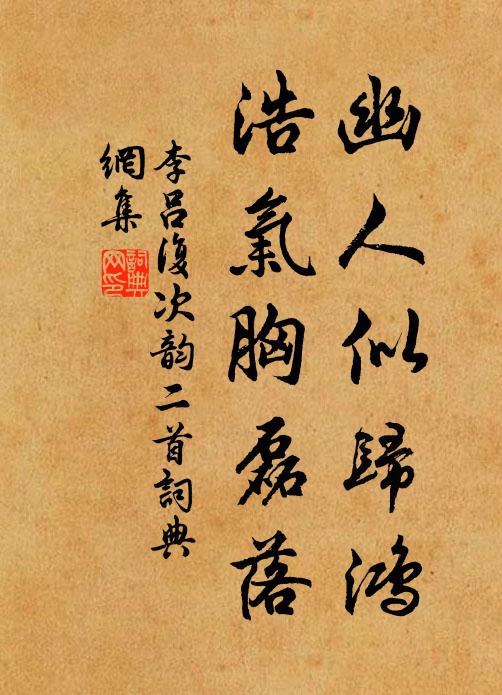 幽人似歸鴻
浩氣胸磊落
李吕復次韵二首詞典
網集
詞典
网印